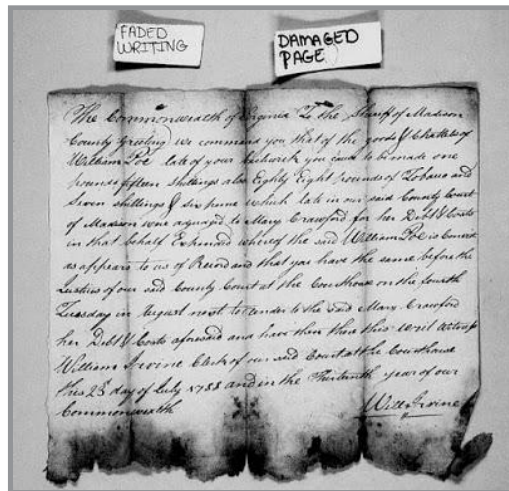 FADED
WRITING
DAMAGED
PAGE
The Commonwealth of Virginia To the Sheriff of Madison
County Greeting we command you that of the goods & Chattles of
William Poe late of your you cause to be made one
pounds fifteen shillings also Eighty Eight pounds of Tobacco and
Seven shillings & six pence which late in our said County Court
of Madison were to Mary Crawford for her Debt & Costs
in that behalf Expended whereof the said William Poe is
as appears to us of Record and that you have the same before the
Justices of our said County Court at the Courthouse on the fourth
Tuesday in August next to render to the said Mary Crawford
her Debt & Costs aforesaid and have then there this writ Witness
William Irvine Clerk of our said Court at the Courthouse
this 28 day of July 1788 and in the Thirteenth year of our
Commonwealth
Will Irvine